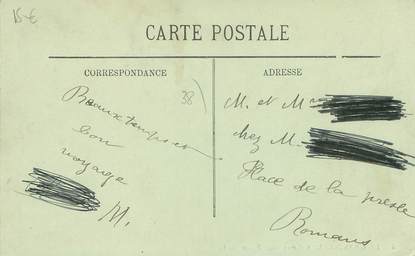 15 €
CARTE POSTALE
CORRESPONDANCE
ADRESSE
38)
Beaux temps et
bon
voyage
M.
M. et M
chez M.
Place de la presle
Romans